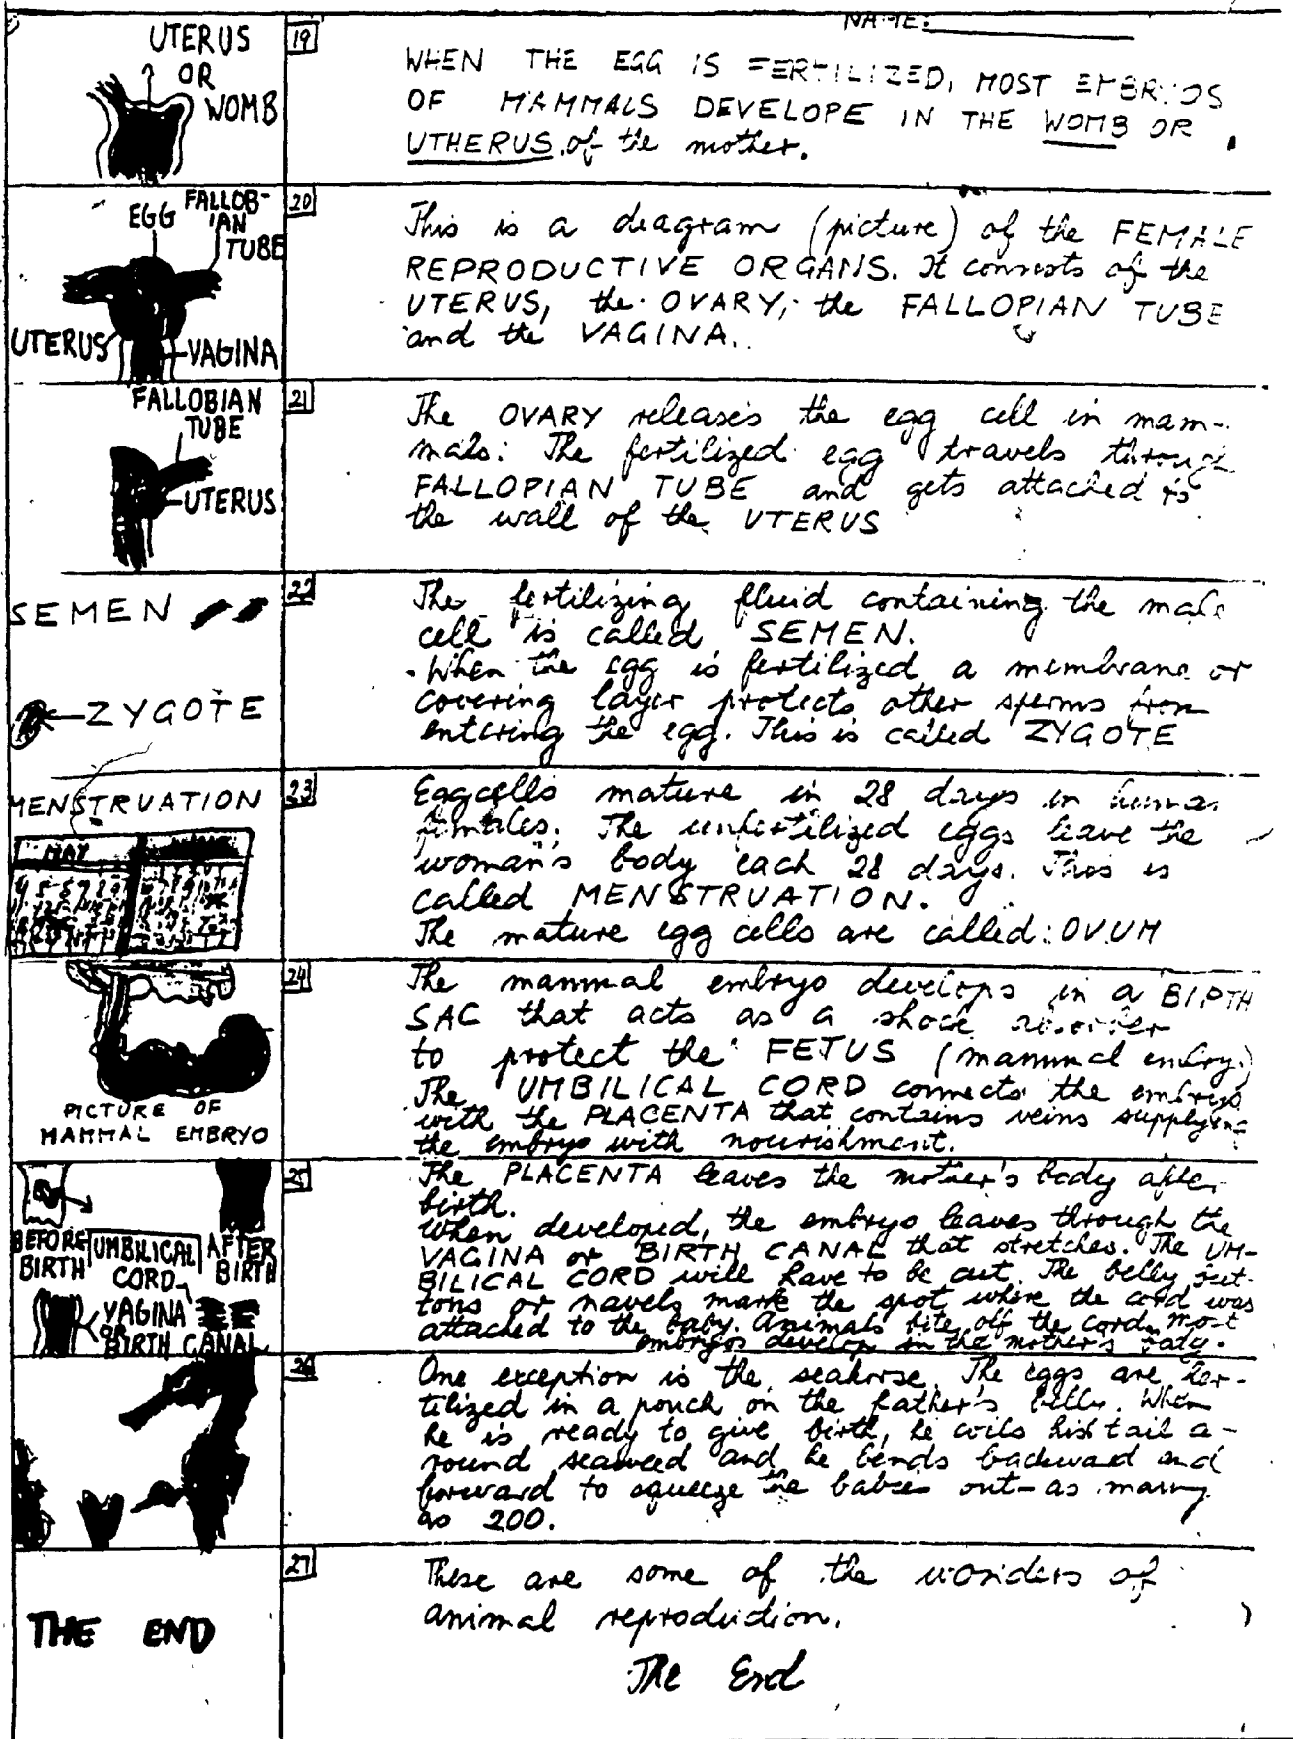 NAME:
UTERUS
OR
WOMB
19
WHEN THE EGG IS FERTILIZED, MOST EMBRYOS
OF MAMMALS DEVELOPE IN THE WOMB OR
UTHERUS of the mother.
EGG FALLOB-
IAN
TUBE
UTERUS
VAGINA
20
This is a diagram (picture) of the FEMALE
REPRODUCTIVE ORGANS. It consists of the
UTERUS, the OVARY, the FALLOPIAN TUBE
and the VAGINA.
FALLOBIAN
TUBE
UTERUS
21
The OVARY releases the egg cell in mam-
mals. The fertilized egg travels through
FALLOPIAN TUBE and gets attached to
the wall of the UTERUS
SEMEN
ZYGOTE
22
The fertilizing fluid containing the male
cell is called SEMEN.
When the egg is fertilized a membrane or
covering layer protects other sperms from
entering the egg. This is called ZYGOTE
MENSTRUATION
MAY
23
Eggcells mature in 28 days in human
females. The unfertilized eggs leave the
woman's body each 28 days. This is
called MENSTRUATION.
The mature egg cells are called: OVUM
PICTURE OF
MAMMAL EMBRYO
24
The mammal embryo develops in a BIRTH
SAC that acts as a shock absorber
to protect the FETUS (mammal embryo)
The UMBILICAL CORD connects the embryo
with the PLACENTA that contains veins supplying
the embryo with nourishment.
BEFORE
BIRTH
UMBILICAL
CORD
AFTER
BIRTH
VAGINA
OR
BIRTH CANAL
25
The PLACENTA leaves the mother's body after
birth.
When developed, the embryo leaves through the
VAGINA or BIRTH CANAL that stretches. The UM-
BILICAL CORD will have to be cut. The belly but-
tons or navels mark the spot where the cord was
attached to the baby. Animals bite off the cord. Most
embryos develop in the mother's body.
26
One exception is the seahorse. The eggs are fer-
tilized in a pouch on the father's belly. When
he is ready to give birth, he coils his tail a-
round seaweed and he bends backward and
forward to squeeze the babies out - as many
as 200.
THE END
27
These are some of the wonders of
animal reproduction.
The End